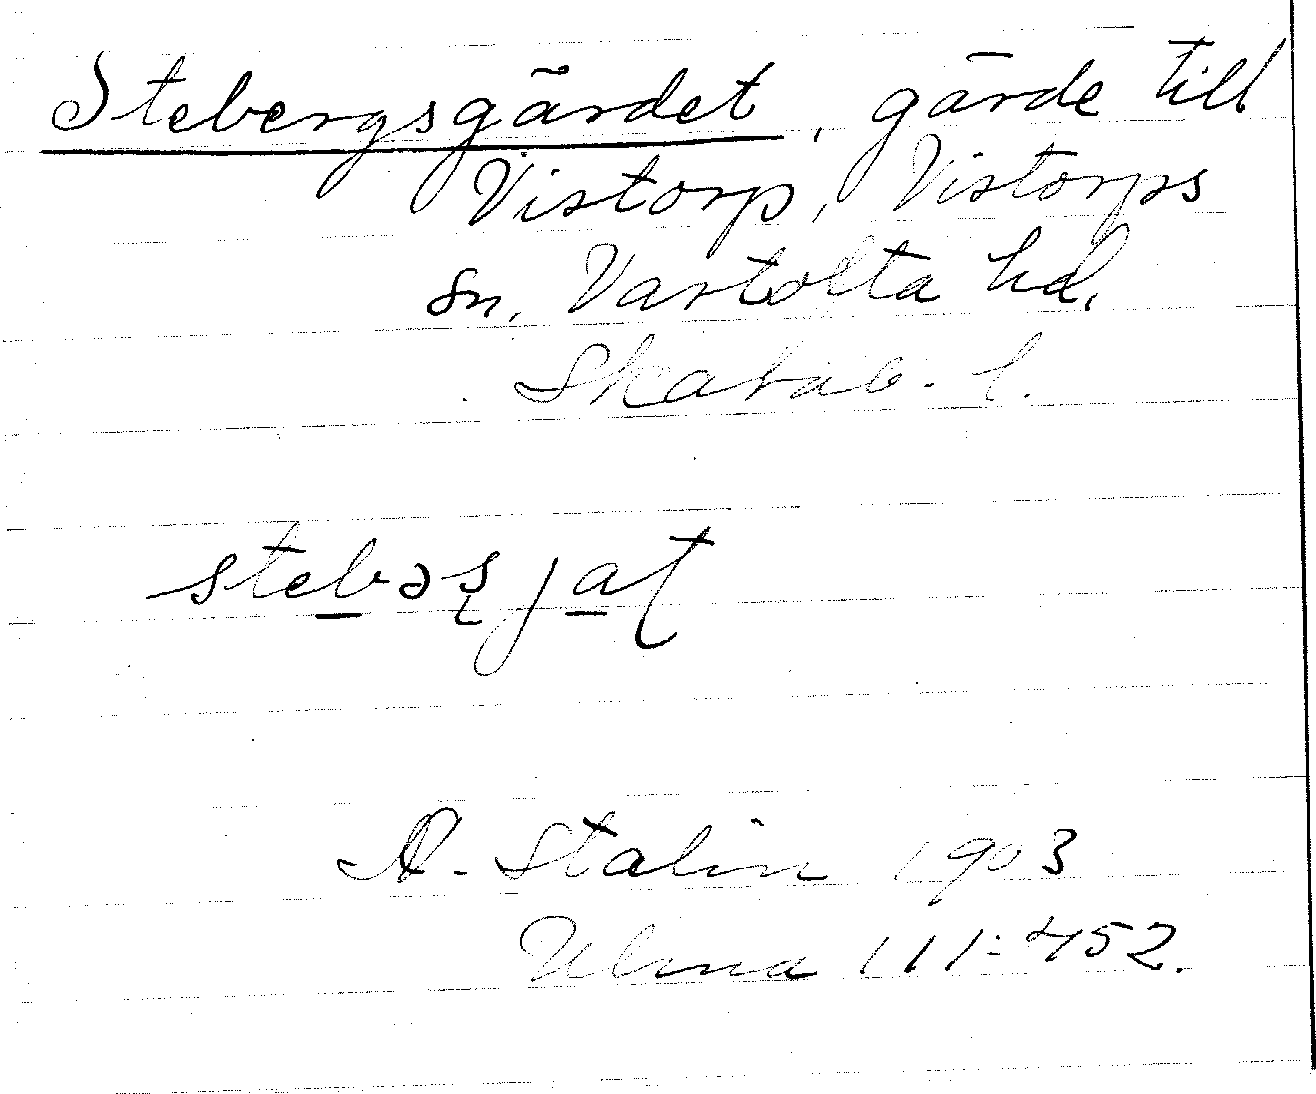 Stebergsgärdet, gärde till
Vistorp, Vistorps
sn, Vartofta hd,
Skarab. l.
stebəʂ jaʈ
A. Stalin 1903
Ulma 111:452.